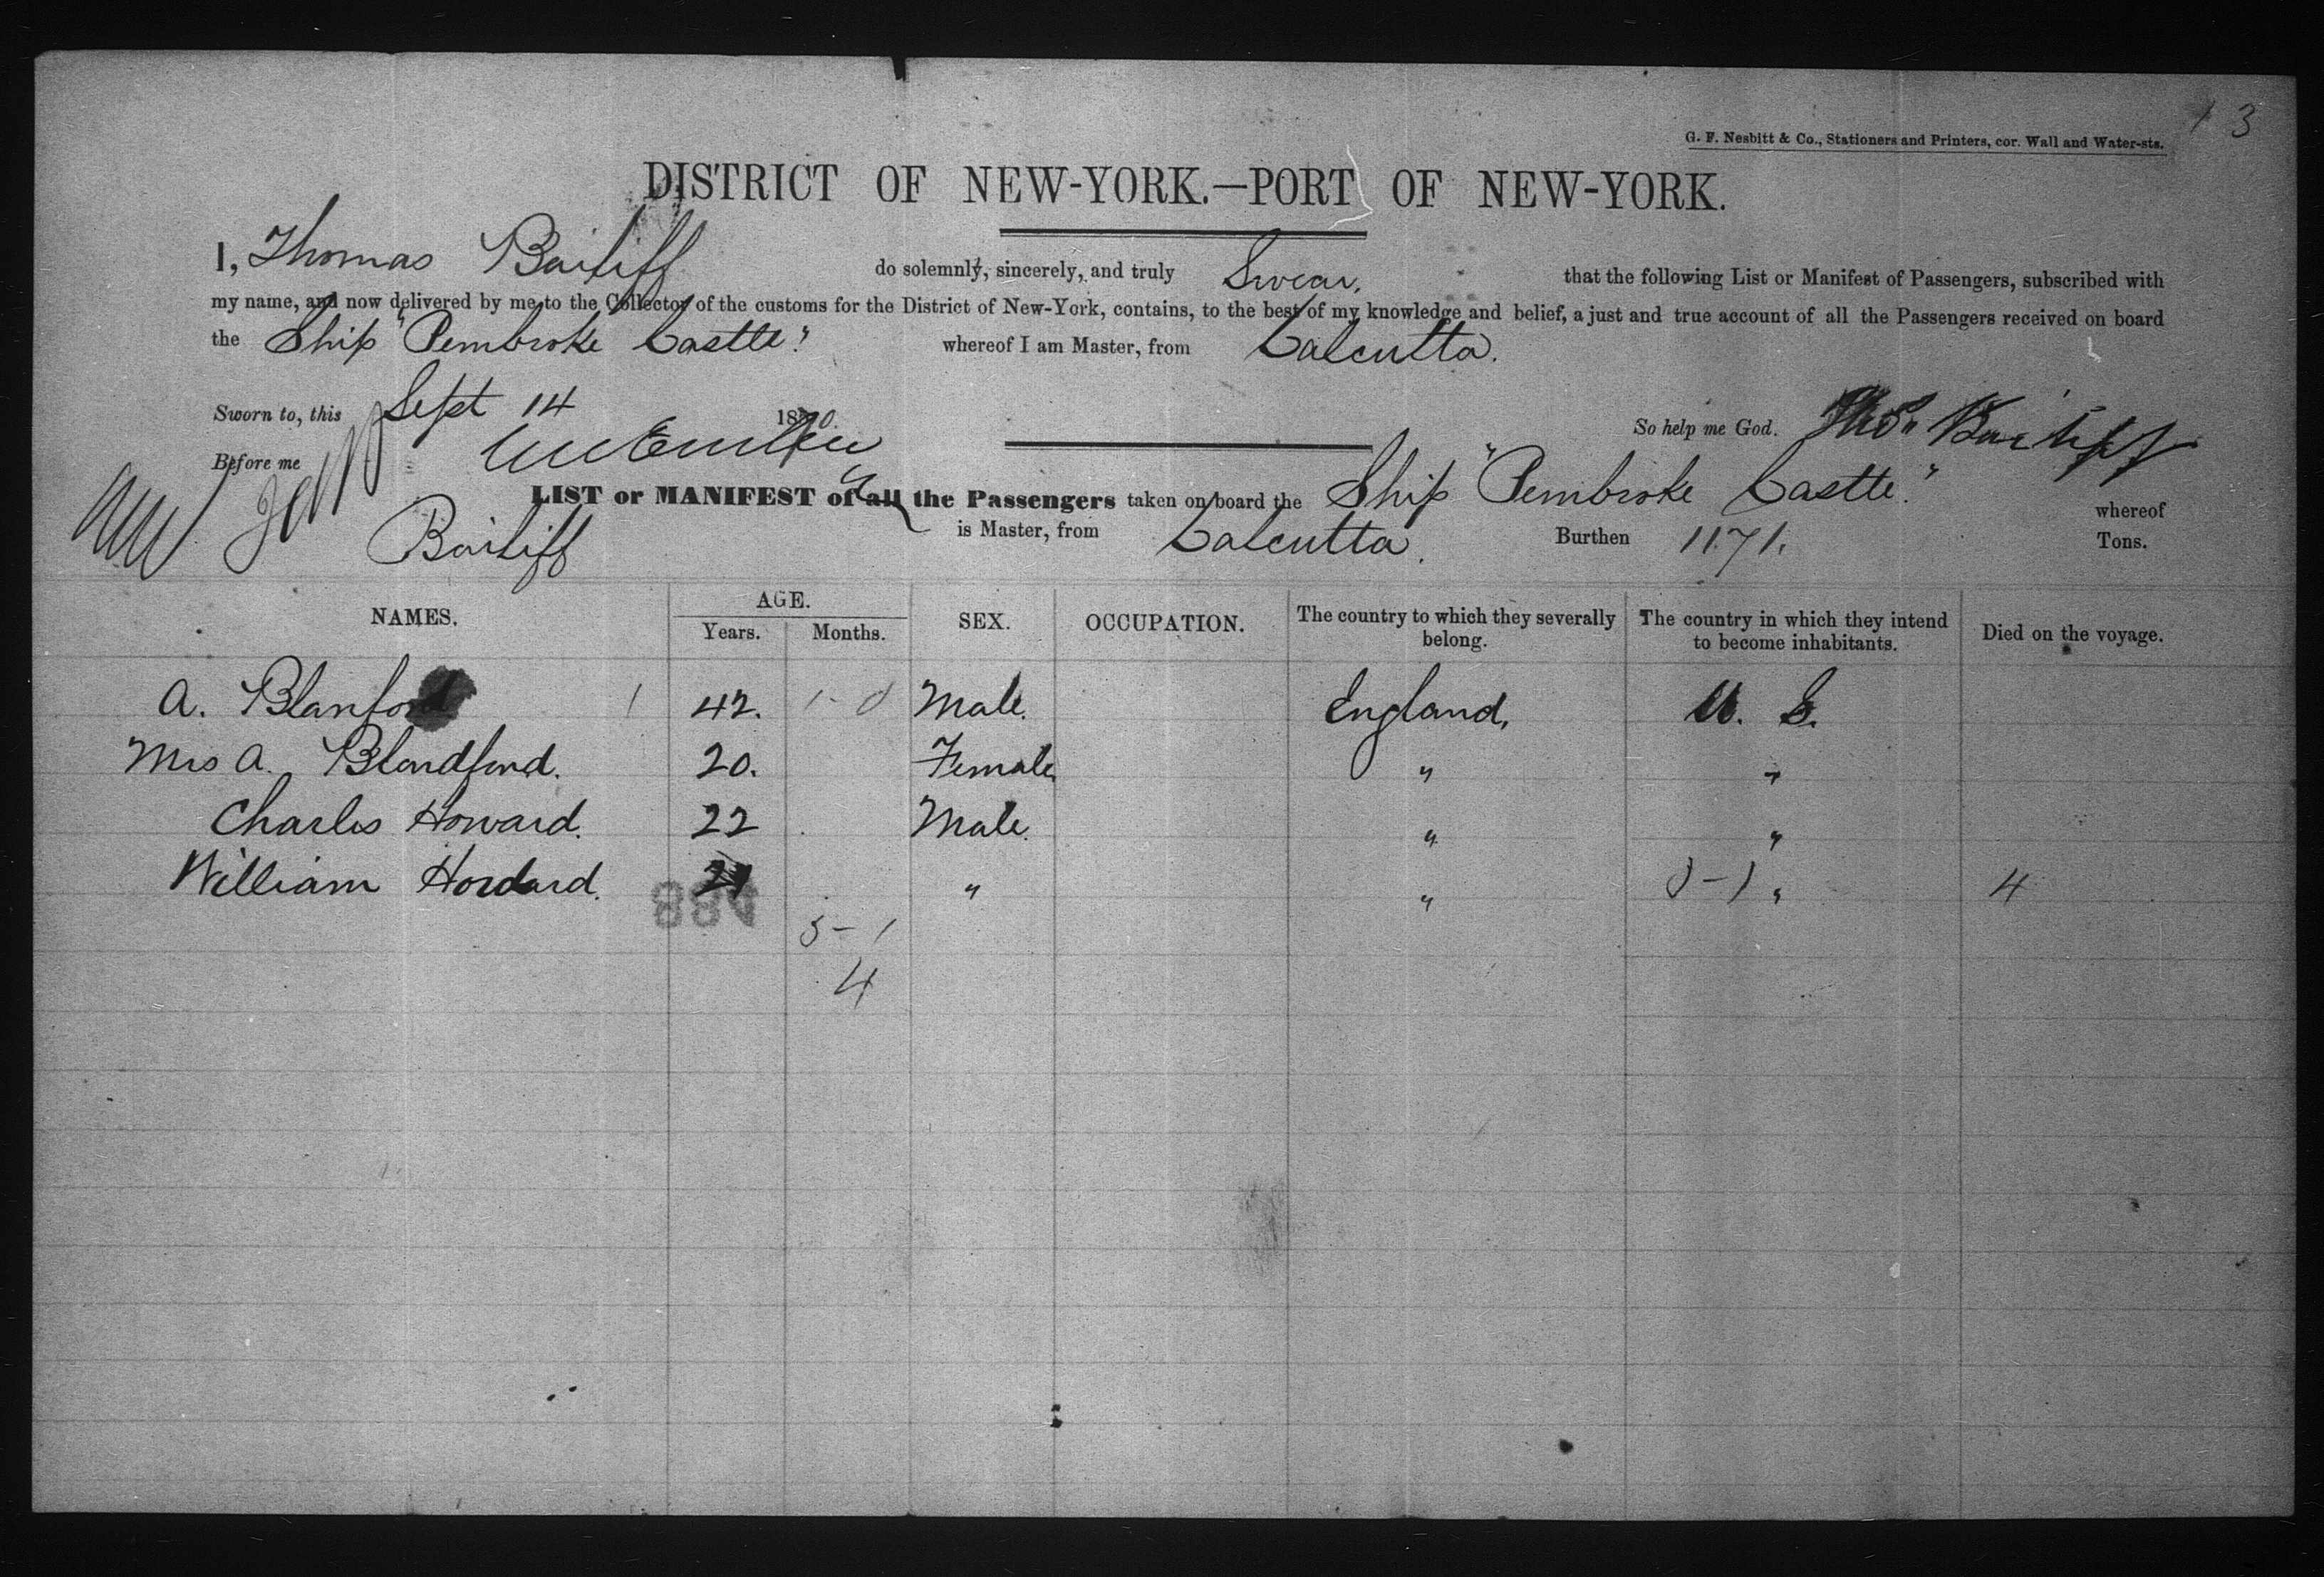 13
G. F. Nesbitt & Co., Stationers and Printers, cor. Wall and Water-sts.
DISTRICT OF NEW-YORK.—PORT OF NEW-YORK.
I, Thomas Bailiff do solemnly, sincerely, and truly Swear, that the following List or Manifest of Passengers, subscribed with
my name, and now delivered by me to the Collector of the customs for the District of New-York, contains, to the best of my knowledge and belief, a just and true account of all the Passengers received on board
the Ship "Pembroke Castle" whereof I am Master, from Calcutta.
Sworn to, this Sept 14 1870. So help me God. Thos Bailiff
Before me
LIST or MANIFEST of all the Passengers taken on board the Ship "Pembroke Castle." whereof
Bailiff is Master, from Calcutta. Burthen 1171. Tons.
NAMES. AGE. Years. Months. SEX. OCCUPATION. The country to which they severally belong. The country in which they intend to become inhabitants. Died on the voyage.
A. Blanford 1 42. 1-0 Male. England. U. S.
Mrs A. Blandford. 20. Female " "
Charles Howard. 22 Male. " "
William Howard. 21 " " 3-1 " 4
3-1
4